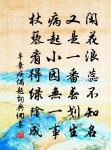 閑花浪蕊不知名
又是一番春草生
病起小園無一事
杖藜看得綠陰成
辛棄疾偶題詞典網